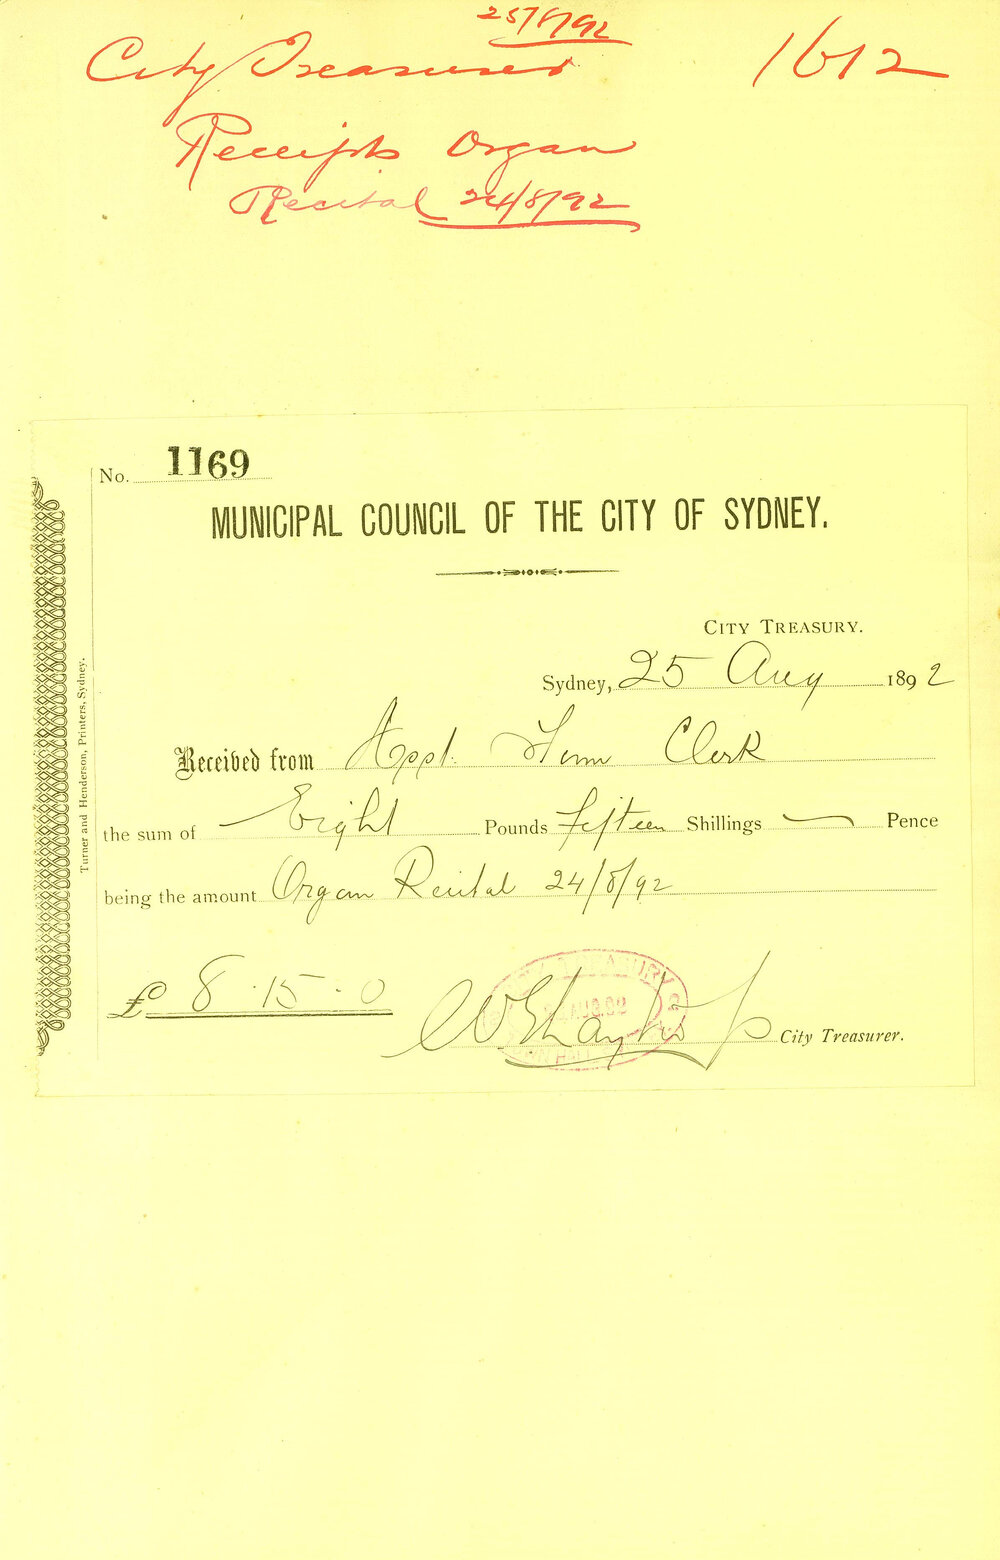 25/8/92
City Treasurer 1612
Receipts Organ
Recital 24/8/92
No. 1169
MUNICIPAL COUNCIL OF THE CITY OF SYDNEY.
CITY TREASURY.
Sydney, 25 Aug 1892
Received from Town Clerk
the sum of Eight Pounds Fifteen Shillings — Pence
being the amount Organ Recital 24/8/92
£ 8.15.0
City Treasurer.
CITY TREASURY
TOWN HALL
Turner and Henderson, Printers, Sydney.